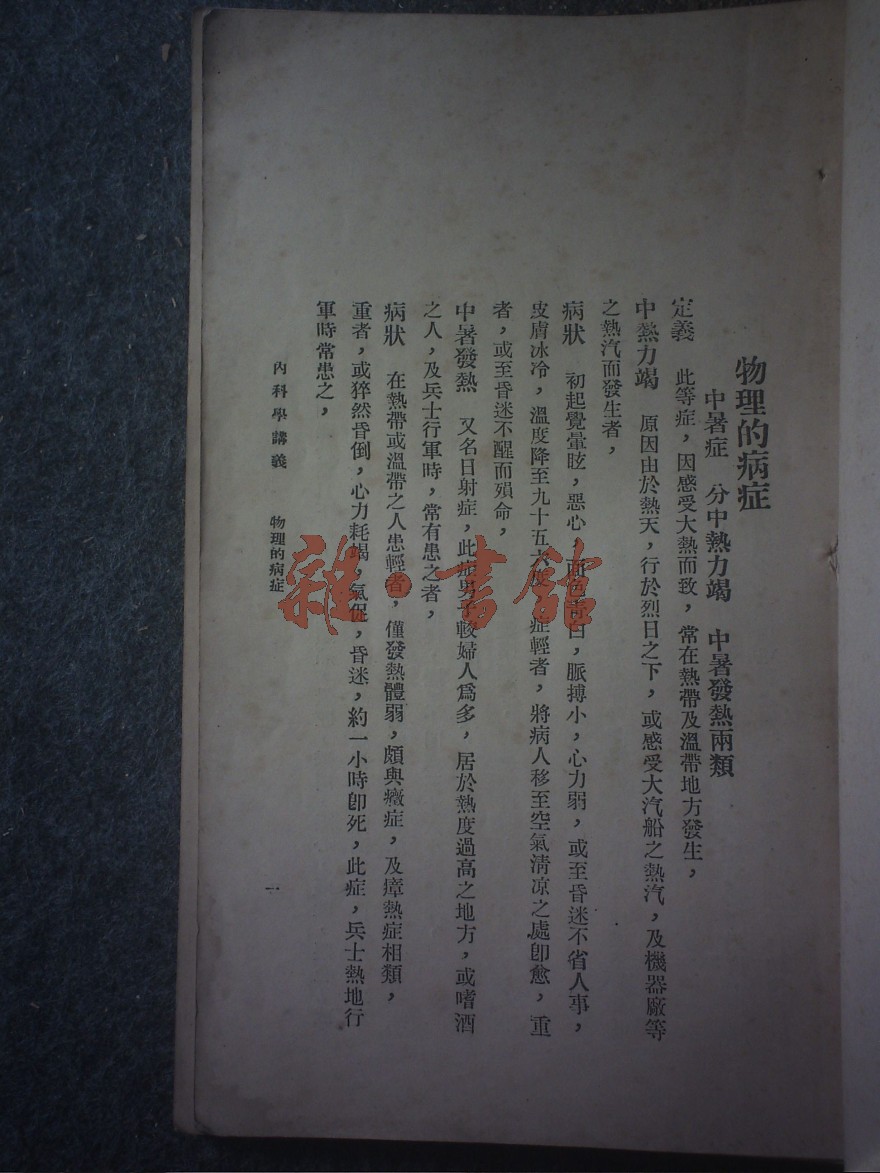 物理的病症
中暑症　分中熱力竭　中暑發熱兩類
定義　此等症，因感受大熱而致，常在熱帶及溫帶地方發生，
中熱力竭　原因由於熱天，行於烈日之下，或感受大汽船之熱汽，及機器廠等
之熱汽而發生者，
病狀　初起覺暈眩，惡心，面色青白，脈搏小，心力弱，或至昏迷不省人事，
皮膚冰冷，溫度降至九十五六度，症輕者，將病人移至空氣清凉之處卽愈，重
者，或至昏迷不醒而殞命，
中暑發熱　又名日射症，此症男子較婦人爲多，居於熱度過高之地方，或嗜酒
之人，及兵士行軍時，常有患之者，
病狀　在熱帶或溫帶之人患輕者，僅發熱體弱，頗與癥症，及瘴熱症相類，
重者，或猝然昏倒，心力耗竭，氣促，昏迷，約一小時卽死，此症，兵士熱地行
軍時常患之，
內科學講義　物理的病症　一
雜·書館